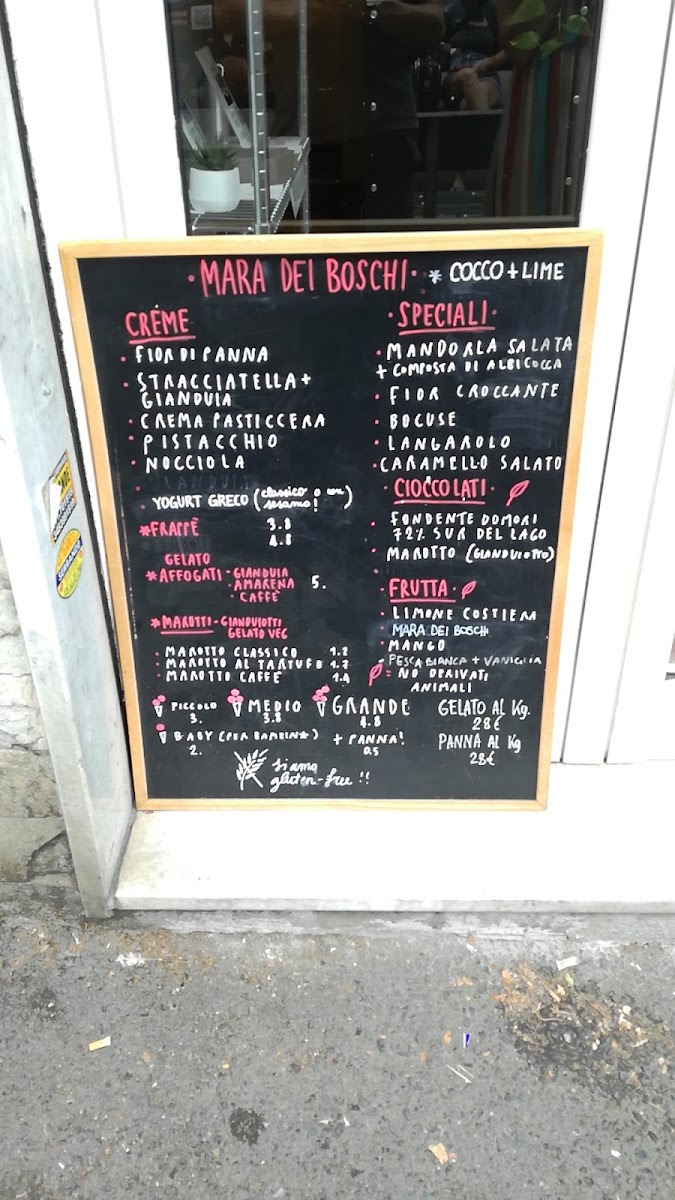 MARA DEI BOSCHI
* COCCO + LIME
CRÈME
FIOR DI PANNA
STRACCIATELLA +
GIANDUIA
CREMA PASTICCERA
PISTACCHIO
NOCCIOLA
YOGURT GRECO (classico o con
sesamo!)
*FRAPPÈ 3.8
4.8
GELATO
*AFFOGATI - GIANDUIA
- AMARENA
- CAFFÈ
5.
*MAROTTI - GIANDUIOTTI
GELATO VEG
MAROTTO CLASSICO 1.2
MAROTTO AL TARTUFO 1.7
MAROTTO CAFFÈ 1.4
SPECIALI
MANDORLA SALATA
+ COMPOSTA DI ALBICOCCA
FIOR CROCCANTE
BOCUSE
LANGAROLO
CARAMELLO SALATO
CIOCCOLATI
FONDENTE DOMORI
72% SUR DEL LAGO
MAROTTO (GIANDUIOTTO)
FRUTTA
LIMONE COSTIERA
MARA DEI BOSCHI
MANGO
PESCA BIANCA + VANIGLIA
= NO DERIVATI
ANIMALI
PICCOLO MEDIO GRANDE
3. 3.8 4.8
BABY (PER BAMBIN*) + PANNA!
2. 0.5
GELATO AL Kg.
28€
PANNA AL Kg
28€
siamo
gluten-free!!